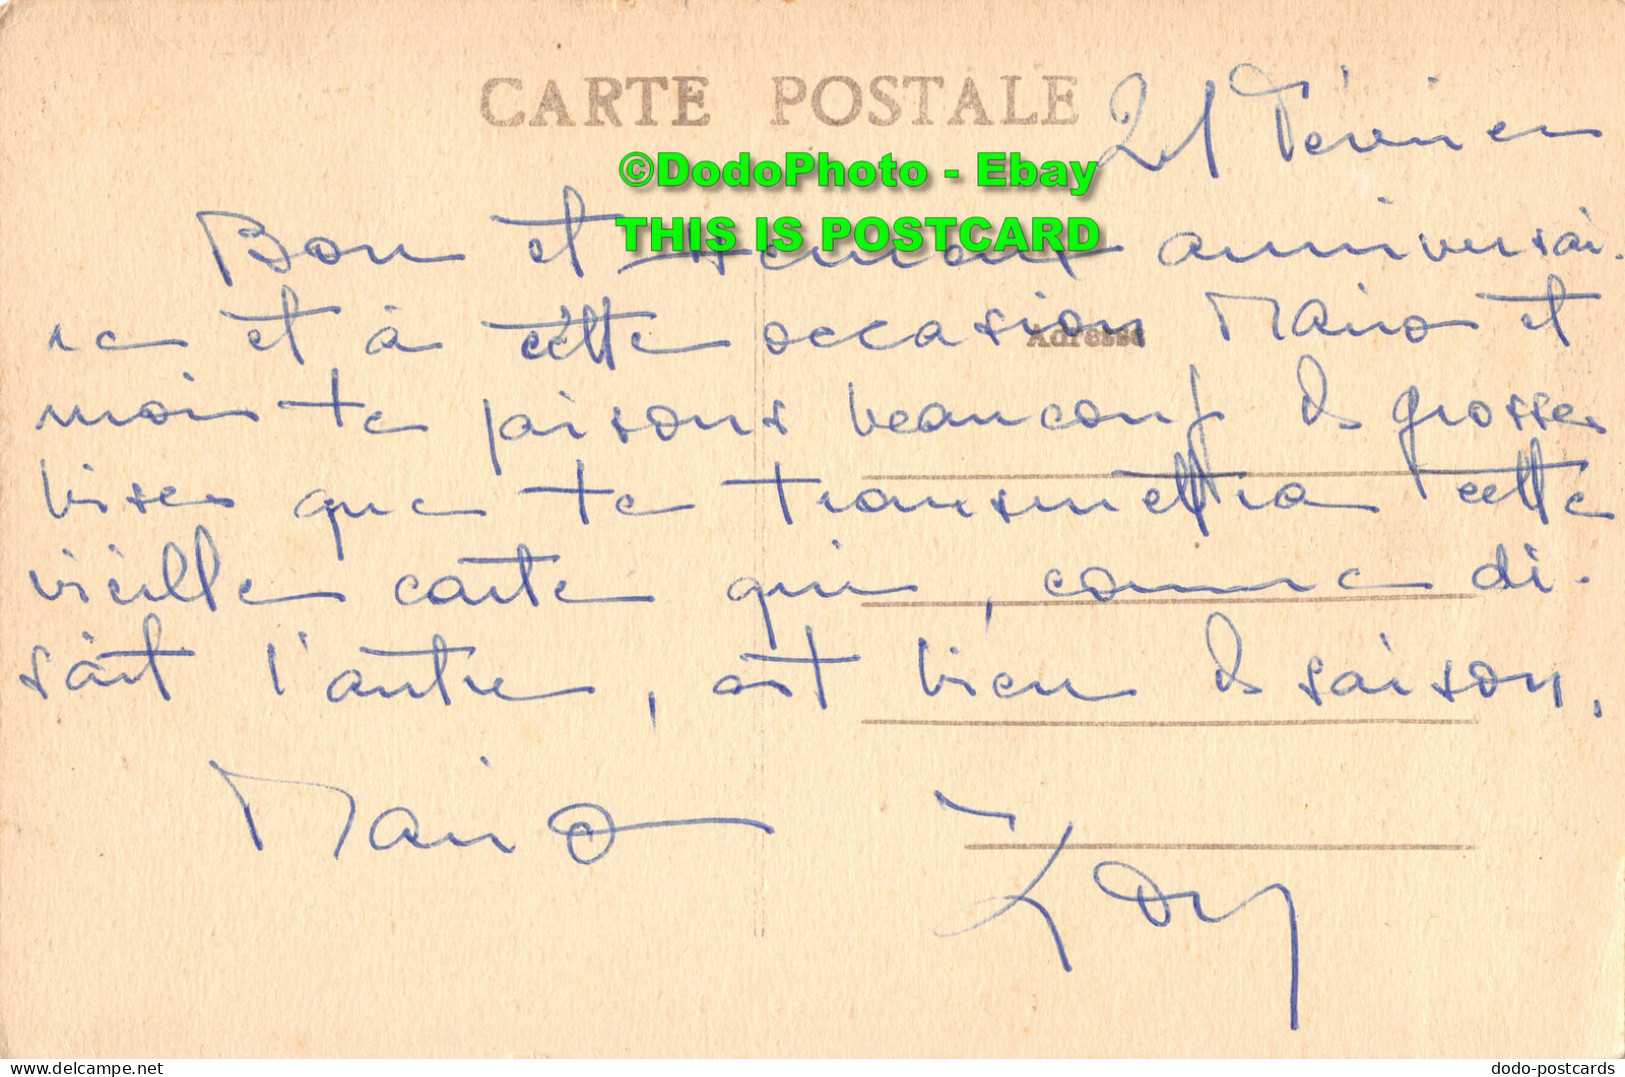 CARTE POSTALE
21 Février
©DodoPhoto - Ebay
THIS IS POSTCARD
Bon et heureux anniversai-
re et à cette occasion Maino et
Adresse
moi te faisons beaucoup de grosses
bises que te transmettra cette
vieille carte qui, comme di-
sait l'autre, est bien de saison.
Maino
www.delcampe.net
dodo-postcards